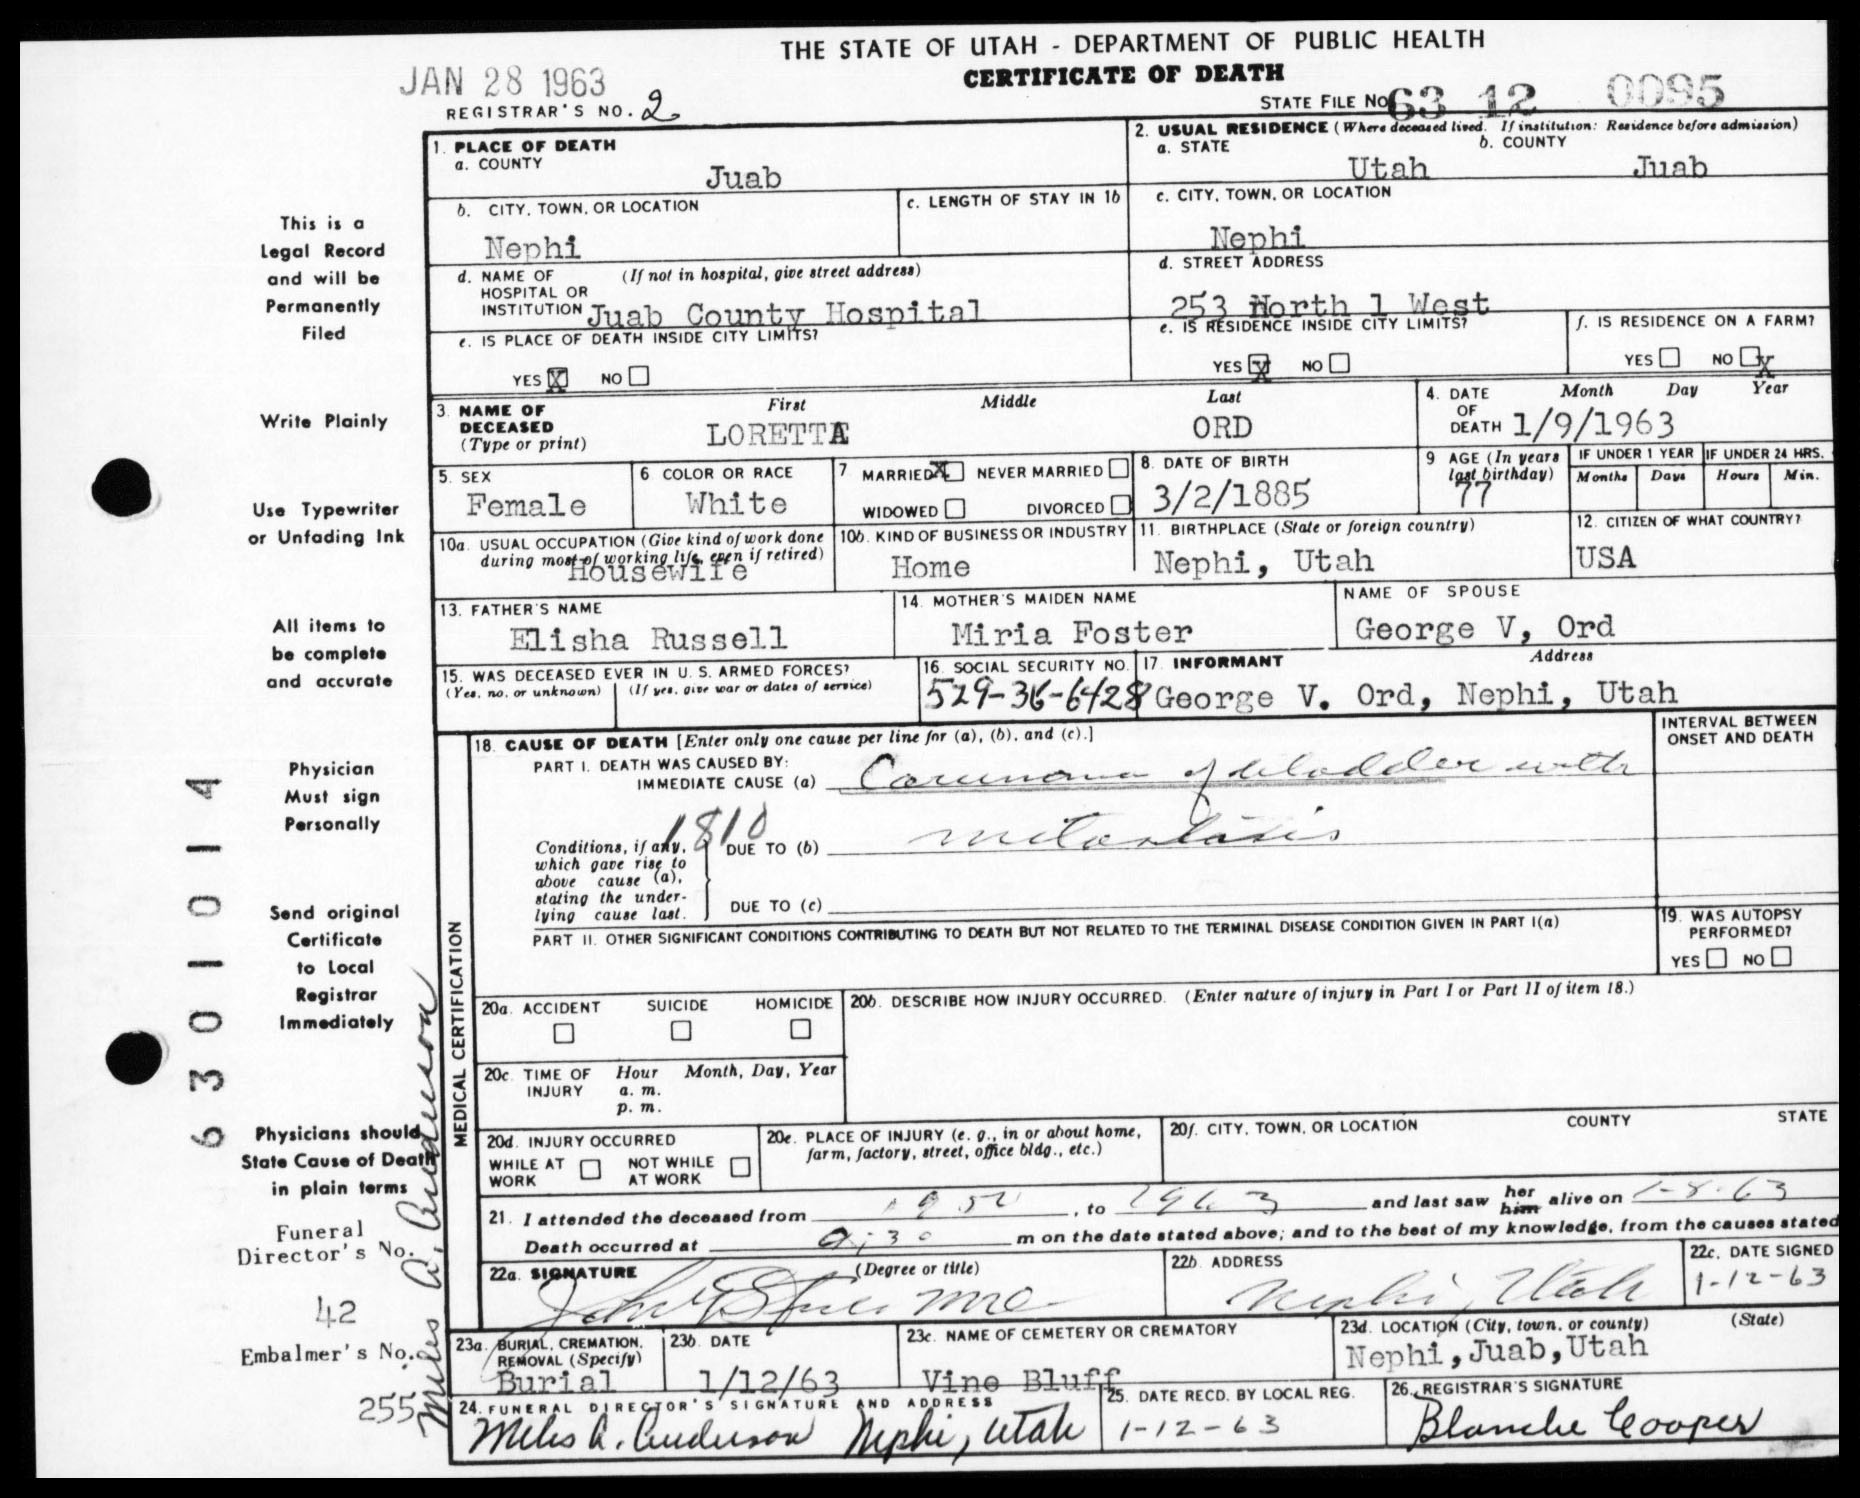 THE STATE OF UTAH - DEPARTMENT OF PUBLIC HEALTH
CERTIFICATE OF DEATH
JAN 28 1963
REGISTRAR'S NO. 2
STATE FILE NO. 63 12 0095
1. PLACE OF DEATH
a. COUNTY
Juab
2. USUAL RESIDENCE (Where deceased lived. If institution: Residence before admission)
a. STATE
Utah
b. COUNTY
Juab
b. CITY, TOWN, OR LOCATION
Nephi
c. LENGTH OF STAY IN 1b
c. CITY, TOWN, OR LOCATION
Nephi
d. NAME OF HOSPITAL OR INSTITUTION
(If not in hospital, give street address)
Juab County Hospital
d. STREET ADDRESS
253 North 1 West
e. IS PLACE OF DEATH INSIDE CITY LIMITS?
YES X NO
e. IS RESIDENCE INSIDE CITY LIMITS?
YES X NO
f. IS RESIDENCE ON A FARM?
YES NO X
3. NAME OF DECEASED
(Type or print)
First Middle Last
LORETTA ORD
4. DATE OF DEATH
Month Day Year
1/9/1963
5. SEX
Female
6 COLOR OR RACE
White
7. MARRIED X NEVER MARRIED
WIDOWED DIVORCED
8. DATE OF BIRTH
3/2/1885
9 AGE (In years last birthday)
77
IF UNDER 1 YEAR
Months Days
IF UNDER 24 HRS.
Hours Min.
10a. USUAL OCCUPATION (Give kind of work done during most of working life, even if retired)
Housewife
10b. KIND OF BUSINESS OR INDUSTRY
Home
11. BIRTHPLACE (State or foreign country)
Nephi, Utah
12. CITIZEN OF WHAT COUNTRY?
USA
13. FATHER'S NAME
Elisha Russell
14. MOTHER'S MAIDEN NAME
Miria Foster
NAME OF SPOUSE
George V, Ord
15. WAS DECEASED EVER IN U. S. ARMED FORCES?
(Yes, no, or unknown) (If yes, give war or dates of service)
16. SOCIAL SECURITY NO.
529-36-6428
17. INFORMANT Address
George V. Ord, Nephi, Utah
MEDICAL CERTIFICATION
18. CAUSE OF DEATH [Enter only one cause per line for (a), (b), and (c).]
INTERVAL BETWEEN ONSET AND DEATH
PART I. DEATH WAS CAUSED BY:
IMMEDIATE CAUSE (a) Carcinoma of bladder with
1810
Conditions, if any, which gave rise to above cause (a), stating the underlying cause last.
DUE TO (b) metastasis
DUE TO (c)
PART II. OTHER SIGNIFICANT CONDITIONS CONTRIBUTING TO DEATH BUT NOT RELATED TO THE TERMINAL DISEASE CONDITION GIVEN IN PART I(a)
19. WAS AUTOPSY PERFORMED?
YES NO
20a. ACCIDENT SUICIDE HOMICIDE
20b. DESCRIBE HOW INJURY OCCURRED. (Enter nature of injury in Part I or Part II of item 18.)
20c. TIME OF INJURY
Hour Month, Day, Year
a. m.
p. m.
20d. INJURY OCCURRED
WHILE AT WORK NOT WHILE AT WORK
20e. PLACE OF INJURY (e. g., in or about home, farm, factory, street, office bldg., etc.)
20f. CITY, TOWN, OR LOCATION COUNTY STATE
21. I attended the deceased from 1952, to 1963 and last saw her him alive on 1-8-63
Death occurred at 9:30 m on the date stated above; and to the best of my knowledge, from the causes stated
22a. SIGNATURE (Degree or title)
22b. ADDRESS
Nephi, Utah
22c. DATE SIGNED
1-12-63
23a. BURIAL, CREMATION, REMOVAL (Specify)
Burial
23b. DATE
1/12/63
23c. NAME OF CEMETERY OR CREMATORY
Vine Bluff
23d. LOCATION (City, town, or county) (State)
Nephi, Juab, Utah
24. FUNERAL DIRECTOR'S SIGNATURE AND ADDRESS
Miles A. Anderson Nephi, Utah
25. DATE RECD. BY LOCAL REG.
1-12-63
26. REGISTRAR'S SIGNATURE
Blanche Cooper
This is a
Legal Record
and will be
Permanently
Filed
Write Plainly
Use Typewriter
or Unfading Ink
All items to
be complete
and accurate
Physician
Must sign
Personally
Send original
Certificate
to Local
Registrar
Immediately
Physicians should
State Cause of Death
in plain terms
Funeral
Director's No.
42
Embalmer's No.
255
Miles A. Anderson
6301014